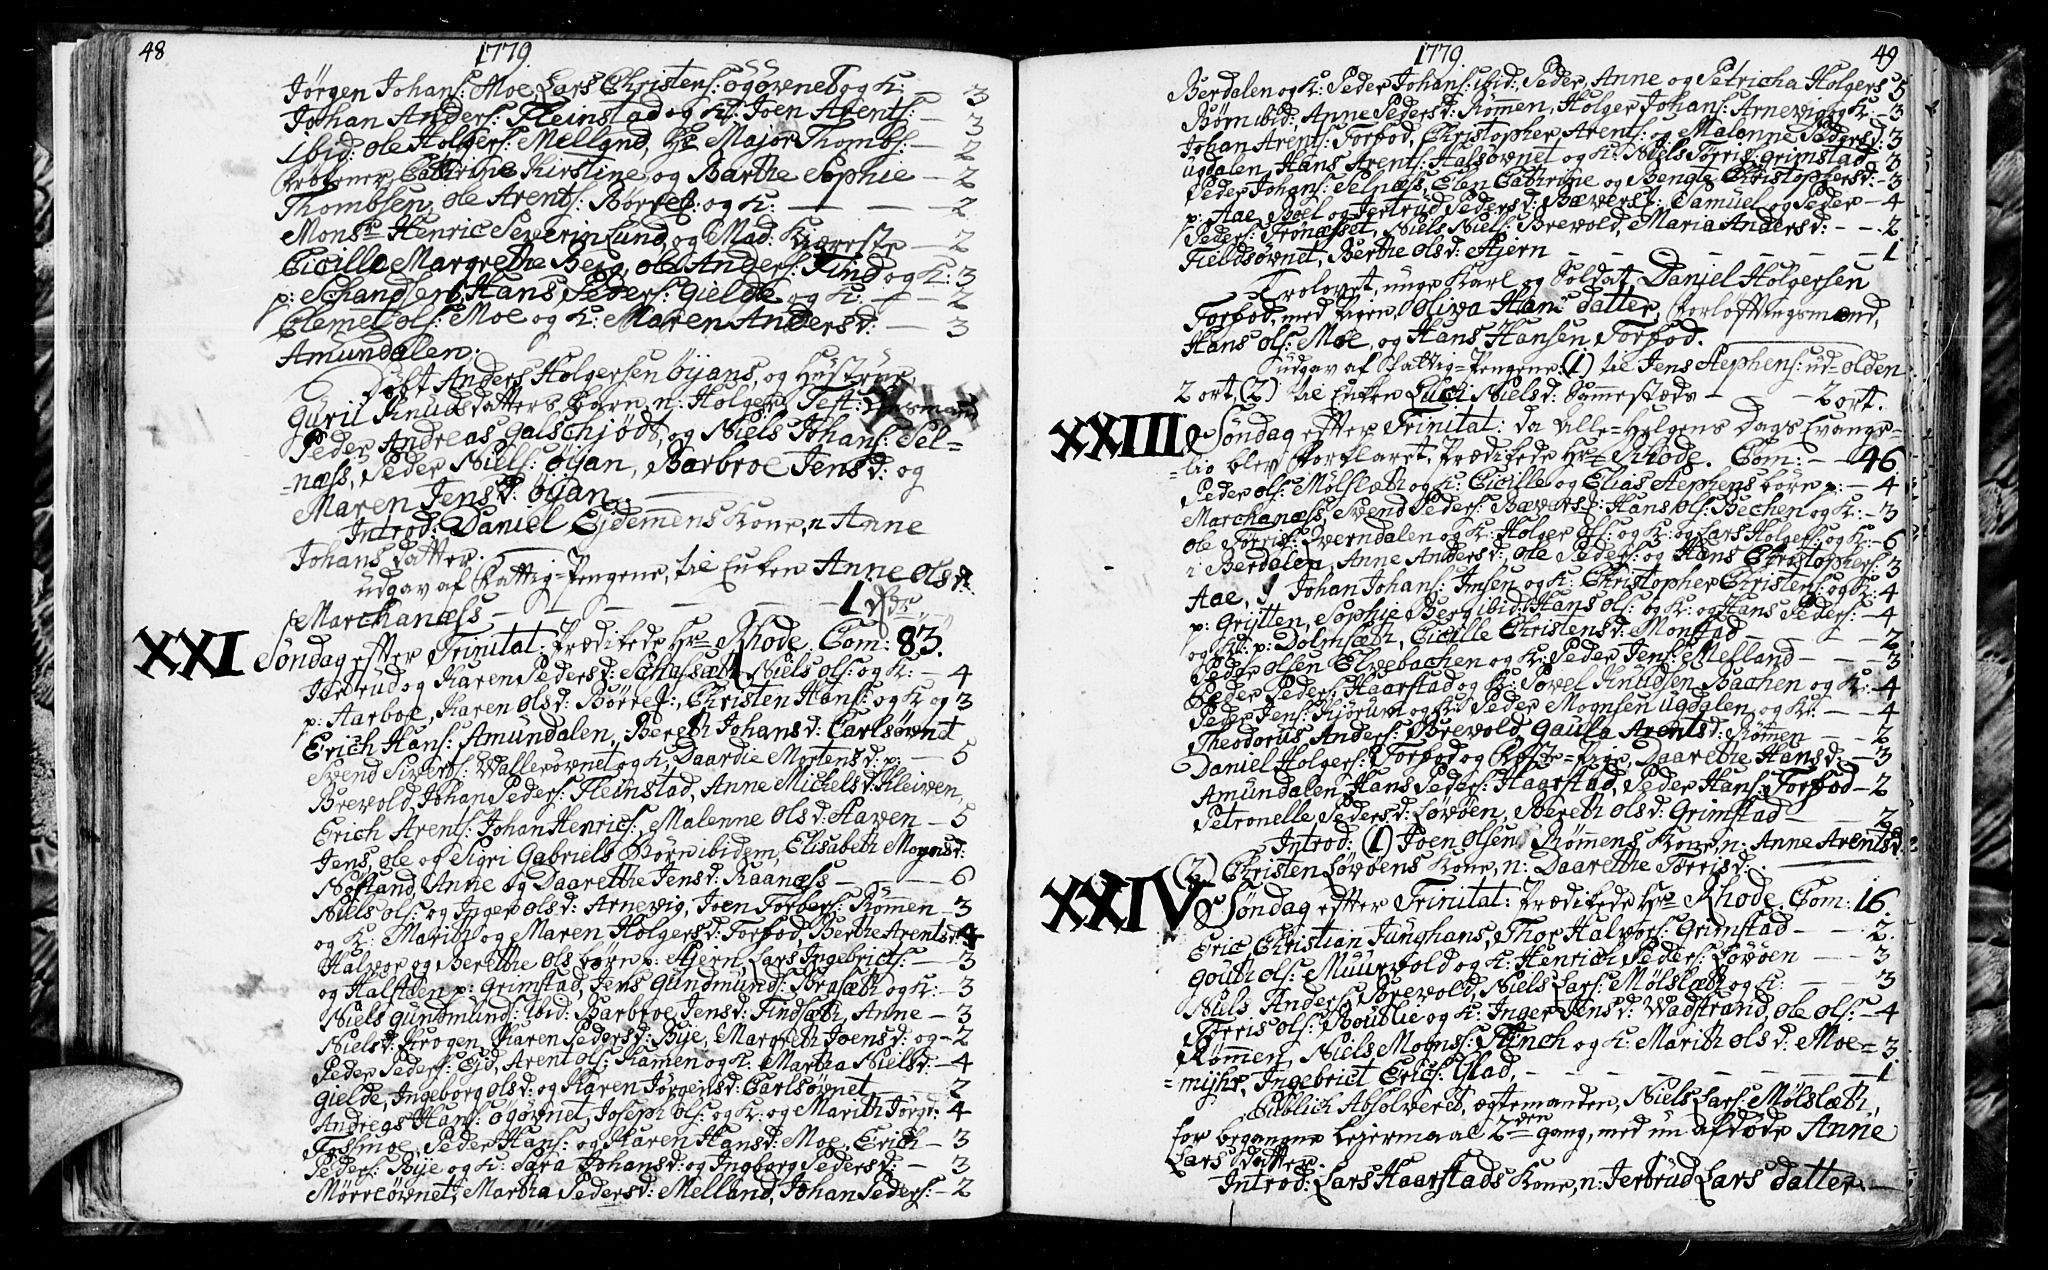 48
1779.
Jørgen Johans: Moe Lars Christens: ogøvnet og K: — 3
Johan Anders: Fleinstad og K: Joen Arents: — 3
ibid: ole Holgers: Melland, Hr Major Thombs: — 2
Cathrine Kirstine og Barthe Sophie — 2
Thombsen, ole Arents: Børresz: og K: — 2
Monsr Henric Severin Lund, og Mad: Kierreste — 2
Cicille Margrethe Berg, ole Anders: Find og K: 3
p: Schandserb, Hans Peders: Gielde og K: — 2
Clemet ols: Moe og K: Maren Andersd: — 3
Amundalen.
Døbt Anders Holgersen Øyans, og Hustrue
Guril Knudsdatters Barn, n: Holger, Test:
Peder Andreas Galschjødt, og Niels Johans: Sel-
-næss, Peder Niels: Øyan, Barbroe Jensd: og
Maren Jensd: Øyan.
Introd: Daniel Ejdemens Kone, n Anne
Johans datter.
udgav af Fattig-Pengene, til Enken Anne olsd:
Marchanæss — 1
XXI Søndag efter Trinitat: Prædikede Hr: Rhode. Com: 83.
Jertrud og Karen Pedersd: Niels ols: og K: — 4
p: Aarboe, Karen olsd: Børresz: Christen Hans: og K og 3
Erich Hans: Amundalen, Bereth Johansd: Carlsøvnet
Svend Sivers: Wallesøvnet og K, Daardie Mortensd: p: — 5
Brevold, Johan Peders: Fleinstad, Anne Michelsd: Kleiven,
Erich Arents: Johan Henrics: Malenne olsd: Haven — 5
Jens, ole og Sigri Gabriels Børn ibidem, Elisabeth Mognsd:
Nøstand, Anne og Daarethe Jensd: Raanæss — 6
Niels ols: og Inger olsd: Arnevig, Joen Torbers: Rømen — 3
og K: Marith og Maren Holgersd: Torsod, Berthe Arentsd: 4
Halvor og Berethe ols børn p: Stjern, Lars Ingebrigts: — 3
og Halsteen p: Grimstad, Jens Gundmunds: Brasæth og K: — 3
Niels gundmunds: ibid: Barbroe Jensd: Findsæth, Anne — 3
Nielsd: Krogen, Karen Pedersd: Bije, Margreth Joensd: og — 2
Peder Peders: Eid, Arent ols: Hamen og K: Martha Nielsd: — 4
gielde, Ingeborg olsd: og Karen Jørgensd: Carlsøvnet — 2
Andreas Hans: ogøvnet, Joseph ols: og K: og Marith Jørgd: 4
Fossmoe, Peder Hans: og Karen Hansd: Moe, Erich — 3
Peders: Bije og K: Sara Johansd: og Ingborg Pedersd: — 3
Mørreøvnet, Martha Pedersd: Melland, Johan Peders: — 2
1779.
49
Berdalen og K: Peder Johans: ibid: Peder, Anne og Petricha Holgers 5
Børn ibid: Anne Pedersd: Rømen, Holger Johans: Arnevig og K: — 3
Johan Arents: Torsod, Christopher Arents: og Malenne Pedersd: 3
ugdalen, Hans Arents: Halsøvnet og K: Niels Torris: grimstad 3
Peder Johans: Selnæss, Elen Cathrine og Bengle Christophersd: — 3
p: Aae, Boel og Jertrud Pedersd: Bæversz: Samuel og Peder — 4
Peders: Tronæsset, Niels Niels: Brevold, Maria Andersd: — — 2
Fieldsøvnet, Berthe olsd: Stjern — 1
Trolovet, unge Karl og Soldat Daniel Holgersen
Torsod, med Pigen Oliva Hans datter, Forlofningsmænd,
Hans ols: Moe, og Hans Hansen Torsod.
udgav af Fattig-Pengene: (1) til Jens Stephens: ud-olden
2 ort, (2) til Enken Luci Nielsd: sammestæds — 2 ort.
XXIII Søndag efter Trinitat: da Alle-Helgens Dags Evange-
-lio blev forklaret, Prædikede Hr: Rhode. Com: — 46
Peder ols: Mølslæth og K: Cicille og Elias Stephens børn p: — 4
Marchanæss, Svend Peders: Bæversz: Hans ols: Bechen og K: — 3
ole Torris: Sverndalen og K: Holger ols: og K: og Lars Holgers: og K: — 6
i Berdalen, Anne Andersd: ole Peders: og Hans Christophers: 3
Aae, Johan Johans: Insen og K: Christopher Christens: og K: 4
p: Grytten, Sophie Berg ibid: Hans ols: og K: og Hans Peders: — 4
og K: p: Dolmsæth, Cicille Christensd: Monstad — 2
Peder olsen Elvebachen og K: Peder Jens: Melland — 3
Peder Peders: Haarstad og K: Povel Knudsen Bachen og K: — 4
Peder Jens: Kjørum og K: Peder Mognsen ugdalen og K: — 4
Theodorus Anders: Brevold, Gaula Arentsd: Rømen — 2
Daniel Holgers: Torsod og Fæste-Pige, Daarethe Hansd: — 3
Amundalen, Hans Peders: Haarstad, Peder Hans: Torsod — 2
Petronelle Pedersd: Løvøen, Bereth olsd: Grimstad — 2
Introd: (1) Joen olsen Rømens Kone, n: Anne Arentsd:
(2) Christen Løvøens Kone, n: Daarethe Torrisd:
XXIV Søndag efter Trinitat: Prædikede Hr: Rhode. Com: 16.
Eric Christian Junghans, Thor Halvors: Grimstad — 2.
Gouth ols: Muurvold og K: Henrich Peders: Løvøen — 3
Niels Anders: Brevold, Niels Lars: Mølslæth og K: — 3
Torris ols: Boublie og K: Inger Jensd: Wadstrand, ole ols: — 4
Rømmen, Niels Mogns: Flinch og K: Marith olsd: Moe- 3.
-myhr, Ingebrict Erics: Glad, — 1
Publich Absolveret, ægtemanden, Niels Lars: Mølslæth,
for begangne Lejermaal 2den gang, med nu afdøde Anne
Lars datter.
Introd: Lars Haarstads Kone, n: Jertrud Lars datter. —